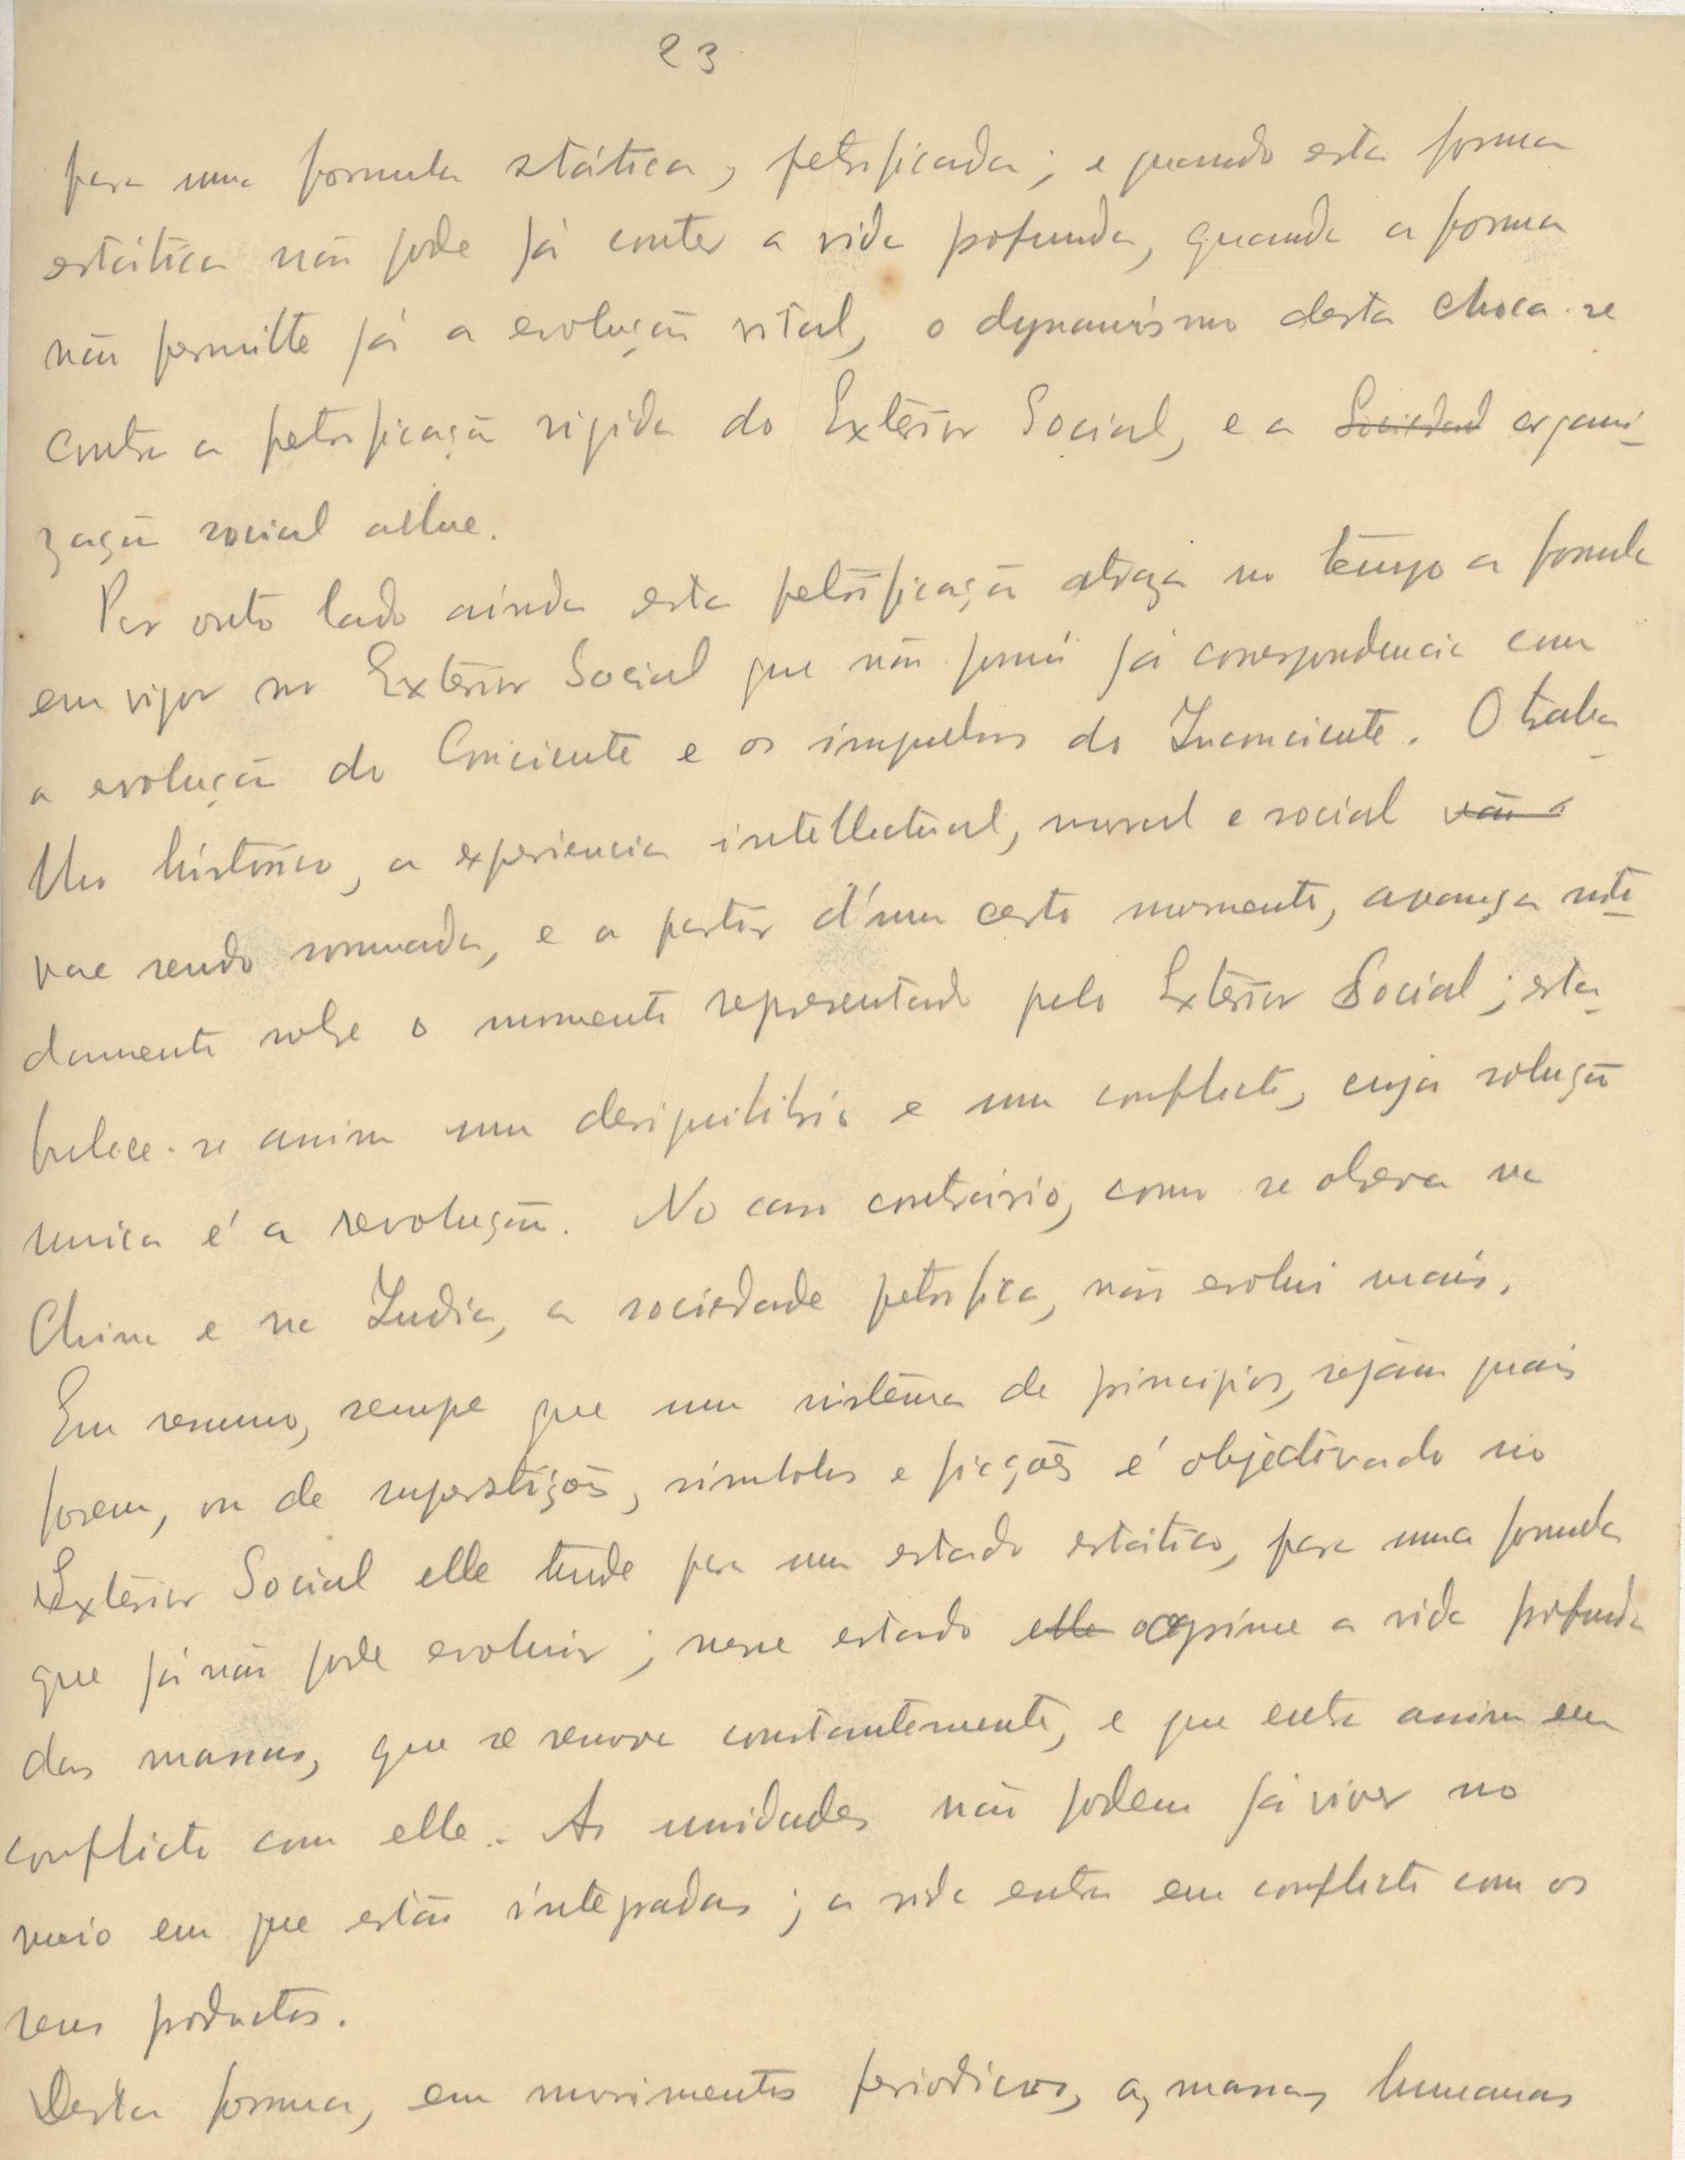 23
para uma formula státíca, petrificada; e quando esta forma
estática não pode já conter a vida profunda, quando a forma
não permitte já a evolução vital, o dynamismo desta choca-se
contra a petrificação rigida do Exterior Social, e a Sociedad organi-
zação social allue.
Por outo lado ainda esta petrificação atraza no tempo a formula
em vigor no Exterior Social que não já correspondencia com
a evolução do Conciente e os impulsos do Inconciente. O traba-
lho histórico, a experiencia intellectual, moral e social vão
vae sendo sommada, e a partir d'um certo momento, avança
damente sobre o momento representado pelo Exterior Social; esta-
belece-se assim um desiquilibrio e um conflicto, cuja solução
unica é a revolução. No caso contrário, como se observa na
China e na India, a sociedade petrifica, não evolui mais.
Em resumo, sempre que um sistema de principios, sejam quais
forem, ou de superstições, símbolos e ficções é objectivado no
Exterior Social elle tende para um estado estático, para uma formula
que já não pode evoluir; nesse estado elle opprime a vida profunda
das massas, que se renova constantemente, e que entra assim em
conflicto com elle. As unidades não podem já viver no
meio em que estão integradas; a vida entra em conflicto com os
seus productos.
Desta forma, em movimentos periodicos, as massas humanas